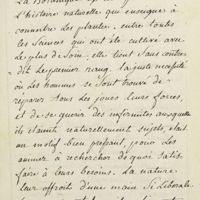 La Botanique
l'histoire naturelle qui enseigne à
connoitre les plantes, entre toutes
les Sciences qui ont été cultivé avec
le plus de Soin, elle tient Sans contre
dit le premier rang, la juste nécessité
où les hommes se sont trouvé de
réparer tous les jours leurs forces,
et de se guérir des infirmités auxquelles
ils étaient naturellement Sujets, était
un motif bien pressant, pour les
animer a rechercher de quoi Satis
faire à leurs besoins. La nature
leur offroit d'une main Si liberale